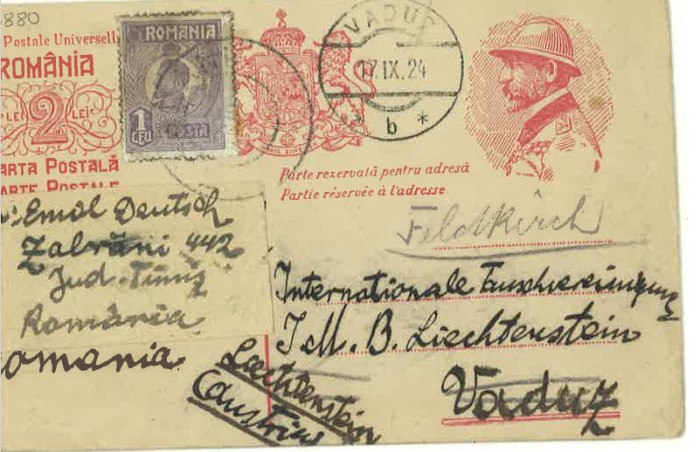 880
Postale Universell
ROMÂNIA
LEI 2 LEI
ARTA POSTALĂ
ARTE POSTALE
ROMANIA
1
LEU
POSTA
VADUZ
17.IX.24
* b *
Parte rezervată pentru adresă
Partie réservée à l'adresse
Emil Deutsch
Zabrani 442
Jud. Timiș
România
omania
Feldkirch
Internationale Tauschvereinigung
I.M.B. Liechtenstein
Vaduz
Liechtenstein
(Austria